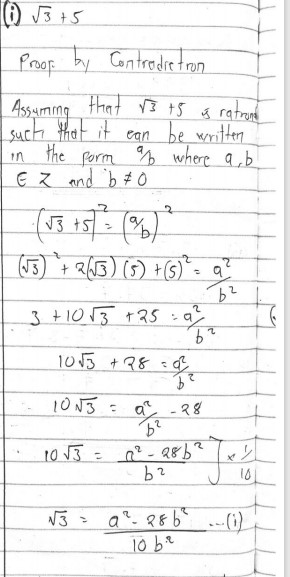 (i) √3 + 5
Proof by Contradiction
Assuming that √3 + 5 is rational
such that it can be written
in the form a/b where a, b
∈ Z and b ≠ 0
(√3 + 5)² = (a/b)²
(√3)² + 2(√3)(5) + (5)² = a²/b²
3 + 10√3 + 25 = a²/b²
10√3 + 28 = a²/b²
10√3 = a²/b² - 28
10√3 = (a² - 28b²)/b² ] × 1/10
√3 = (a² - 28b²)/10b² ---(i)